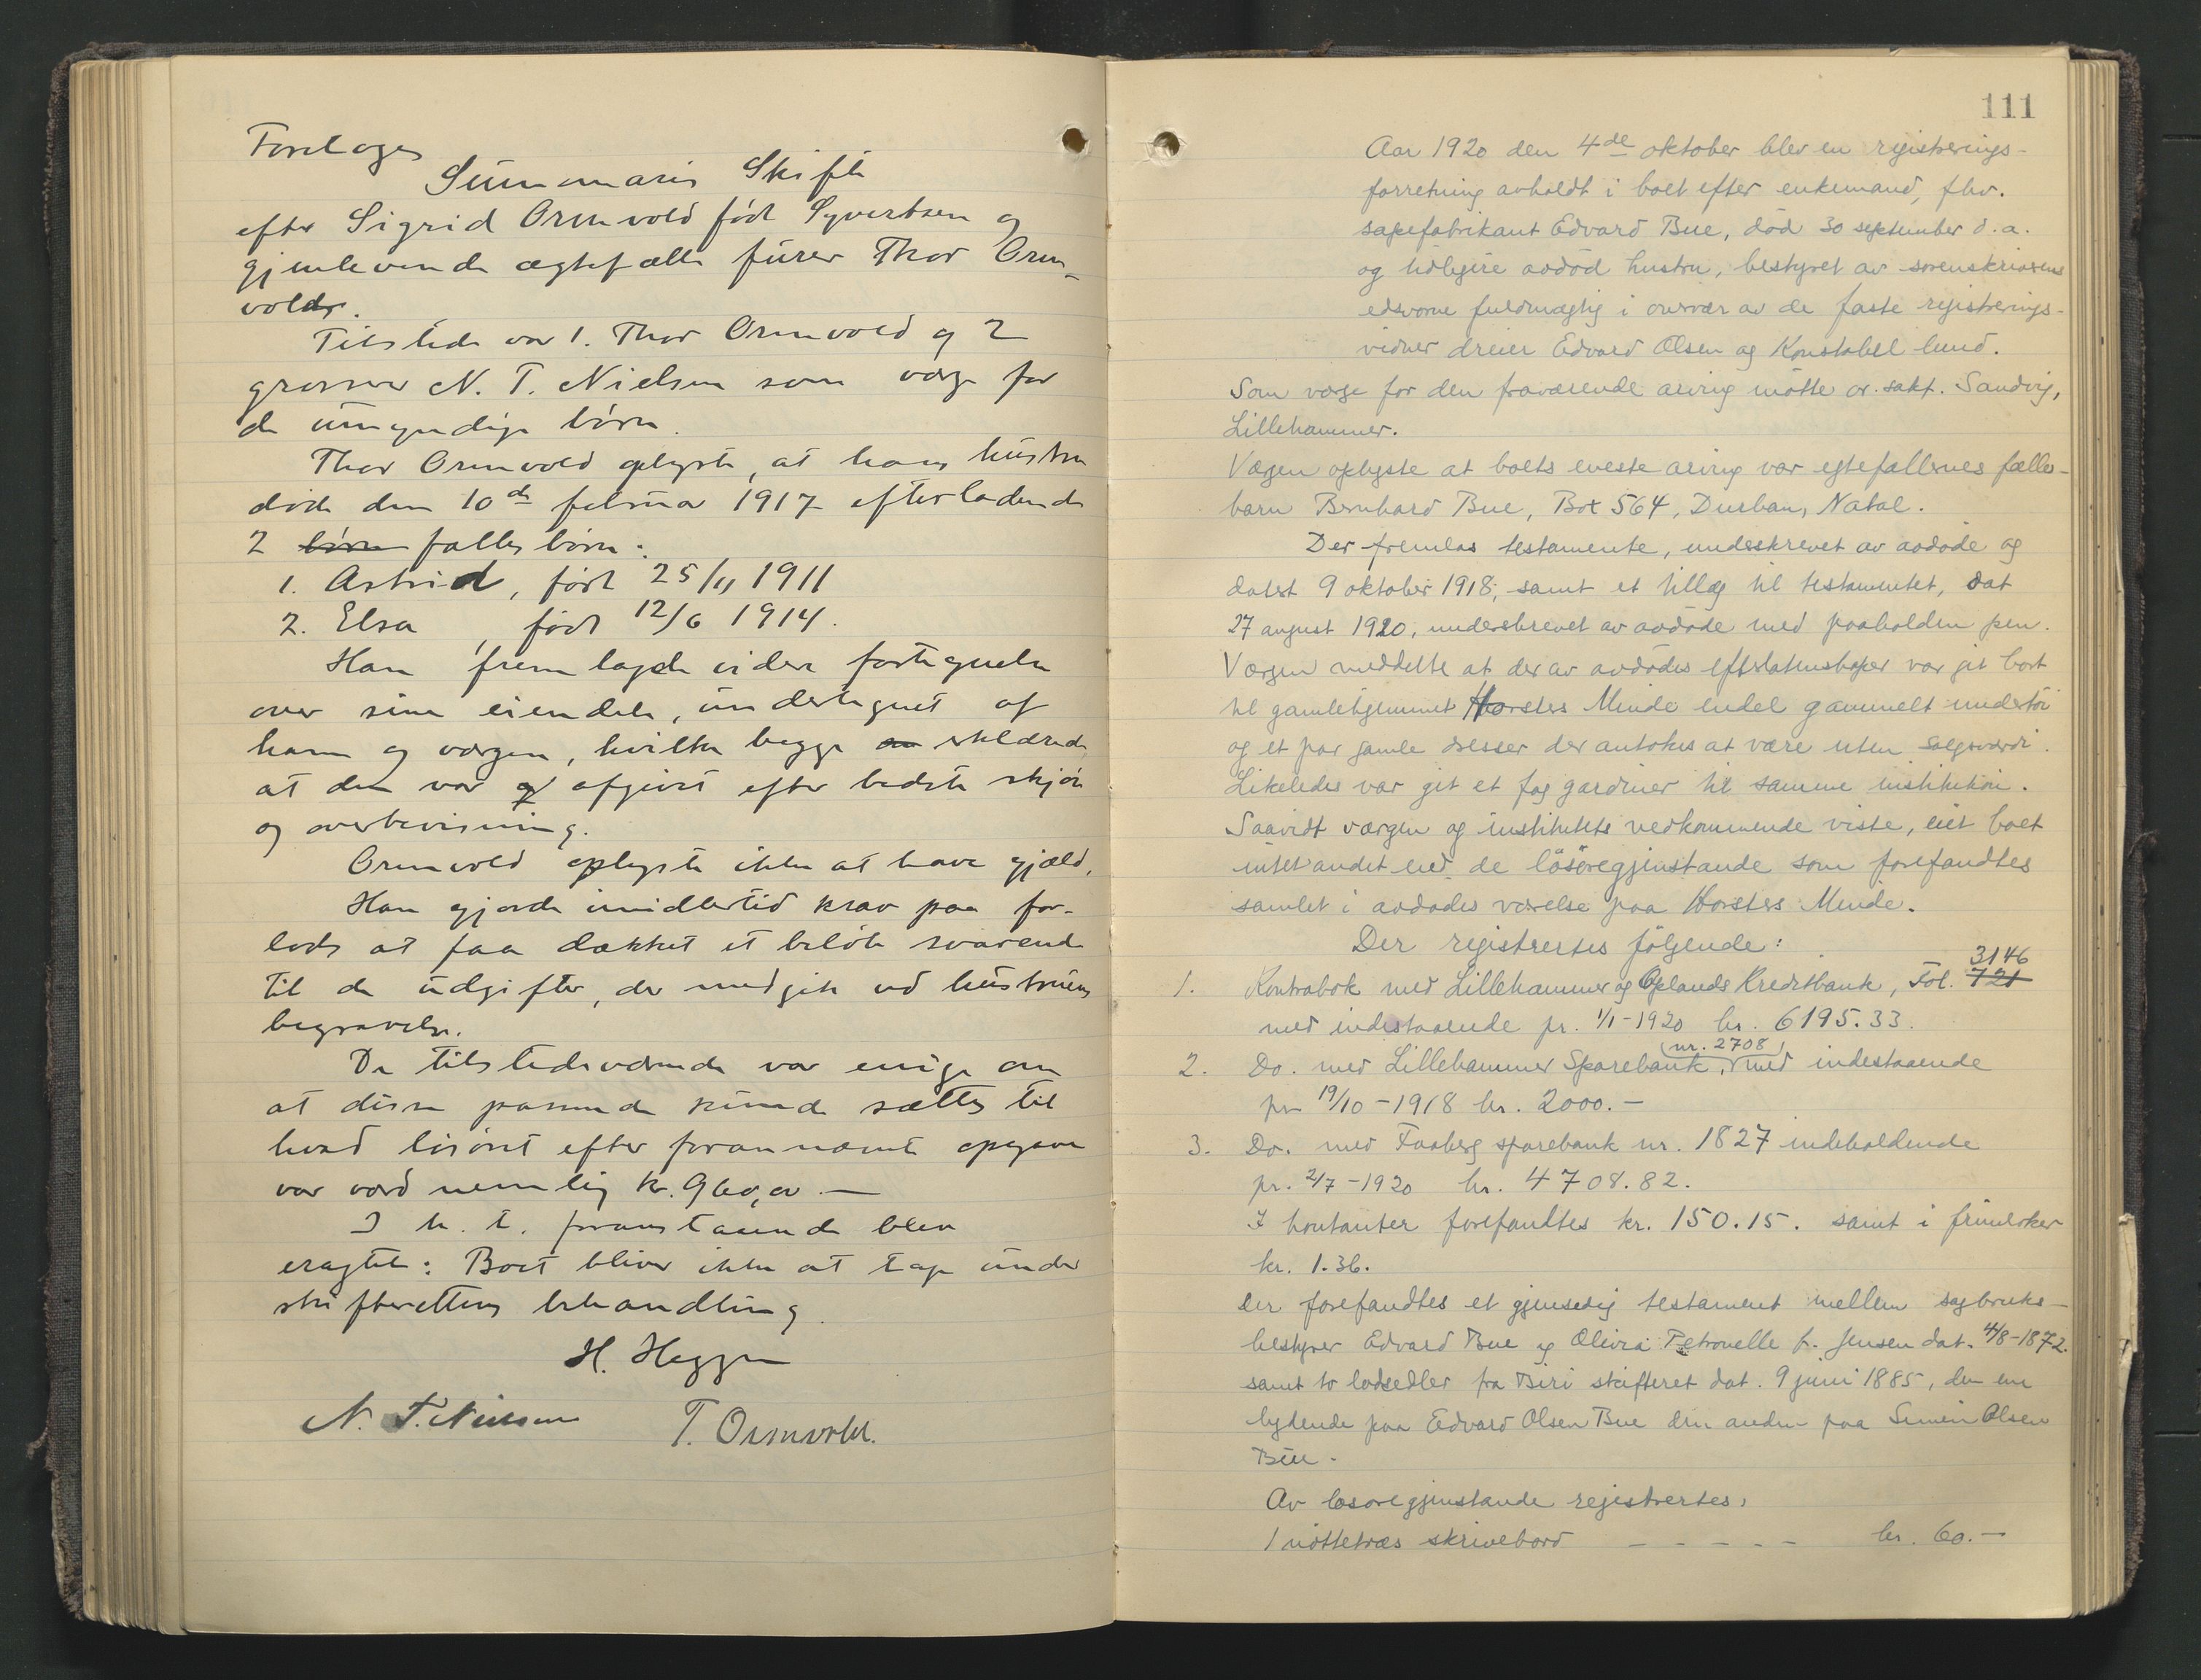 Foretages
Summarisk Skifte
efter Sigrid Ormvold født Syvertsen og
gjenlevende ægtefælle furer Thor Orm-
volds.
Tilstede var 1. Thor Ormvold og 2
grosser N. T. Nielsen som værge for
de umyndige børn.
Thor Ormvold oplyste, at hans hustru
døde den 10de februar 1917 efterladende
2 børn fælles børn:
1. Astrid, født 25/11 1911
2. Elsa, født 12/6 1914.
Han fremlagde videre fortegnelse
over sine eiendele, undertegnet af
ham og værgen, hvilke begge erklærede,
at den var afgivet efter bedste skjøn
og overbevisning.
Ormvold oplyste ikke at have gjæld.
Han gjorde imidlertid krav paa for-
lods at faa dækket et beløb svarende
til de udgifter, der medgik ved hustruens
begravelse.
De tilstedeværende var enige om
at disse passende kunde sættes til
hvad løsøret efter forannævnte opgave
var værd nemlig kr. 960,00 —
I h. t. foranstaaende blev
eragtet: Boet bliver ikke at tage under
skifterettens behandling.
H. Heggen
N. T. Nielsen T. Ormvold.
111
Aar 1920 den 4de oktober blev en registrerings-
forretning avholdt i boet efter enkemand, fhv.
sæpefabrikant Edvard Bue, død 30 september d.a.
og tidligere avdød hustru, bestyret av sorenskriverens
edsvorne fuldmægtig i overvær av de faste registrerings-
vidner dreier Edvard Olsen og Konstabel Lund.
Som værge for den fraværende arving møtte or. sakf. Sandvig,
Lillehammer.
Værgen oplyste at boets eneste arving var egtefællernes fælles-
barn Bernhard Bue, Box 564, Durban, Natal.
Der fremlas testamente, underskrevet av avdøde og
datert 9 oktober 1918, samt et tillæg til testamentet, dat
27 august 1920, underskrevet av avdøde med paaholden pen.
Værgen meddelte at der av avdødes efterlatenskaper var git bort
til gamlehjemmet Horsters Minde endel gammelt undertøi
og et par gamle dresser der antokes at være uten salgsværdi.
Likeledes var git et fag gardiner til samme institution.
Saavidt værgen og institutets vedkommende viste, eiet boet
intet andet end de løsøregjenstande som forefandtes
samlet i avdødes værelse paa Horsters Minde.
Der registrertes følgende:
1. Kontrabok med Lillehammer og Oplands Kreditbank, Fol. 721 3146
med indestaaende pr. 1/1-1920 kr. 6195.33.
2. Do. med Lillehammer Sparebank, (nr. 2708) med indestaaende
pr 19/10-1918 kr. 2000.-
3. Do. med Faaberg sparebank nr. 1827 indeholdende
pr. 2/7-1920 kr. 4708.82.
I kontanter forefandtes kr. 150.15. samt i frimerker
kr. 1.36.
Der forefandtes et gjensidig testament mellem sagbruks-
bestyrer Edvard Bue og Olivia Petronelle f. Jensen dat. 4/8-1872.
samt to lodsedler fra Biri skifteret dat. 9 juni 1885, den ene
lydende paa Edvard Olsen Bue den anden paa Simen Olsen
Bue.
Av løsøregjenstande registrertes,
1 nøttetræs skrivebord - - - - - kr. 60.-